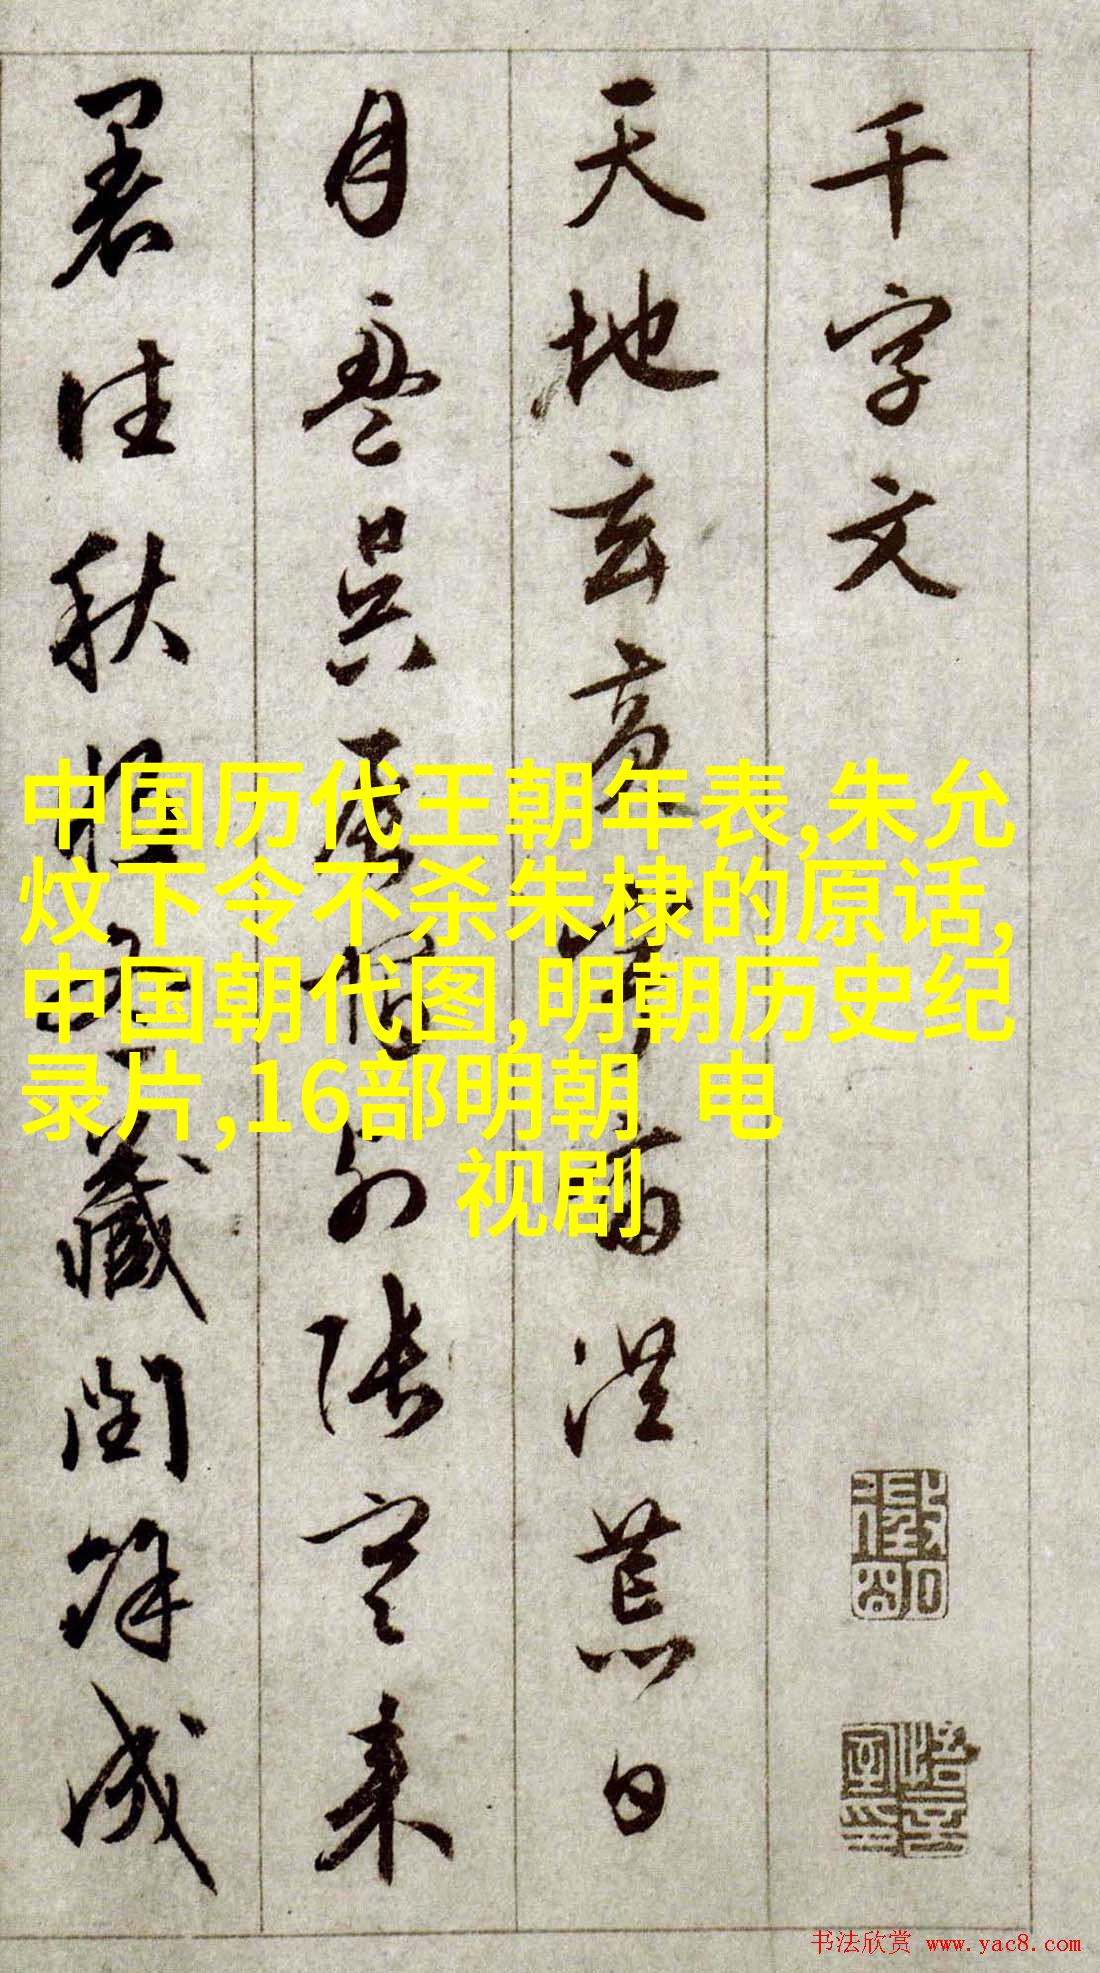 千字文
天地玄黄宇宙洪荒日
月盈昃辰宿列张寒来
暑往秋收冬藏闰馀成
中国历代王朝年表,朱允
炆下令不杀朱棣的原话,
中国朝代图,明朝历史纪
录片,16部明朝 电
视剧
书法欣赏 www.yac8.com